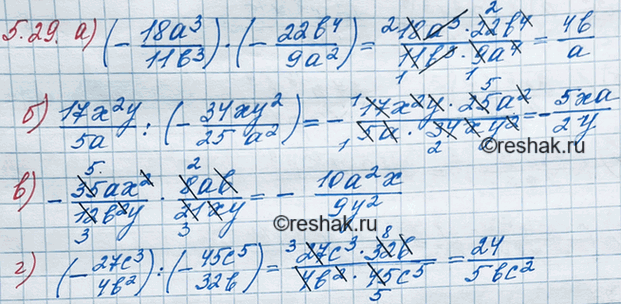 5.29. а) (- 18a³/11b³) · (- 22b⁴/9a²) = 18a³ · 22b⁴/11b³ · 9a⁴ = 4b/a
б) 17x²y/5a : (- 34xy²/25a²) = - 17x²y · 25a²/5a · 34xy² = - 5xa/2y
©reshak.ru
в) - 35ax²/12b²y · 8ab/21xy = - 10a²x/9y²
©reshak.ru
г) (- 27c³/4b²) : (- 45c⁵/32b) = 27c³ · 32b/4b² · 45c⁵ = 24/5bc²